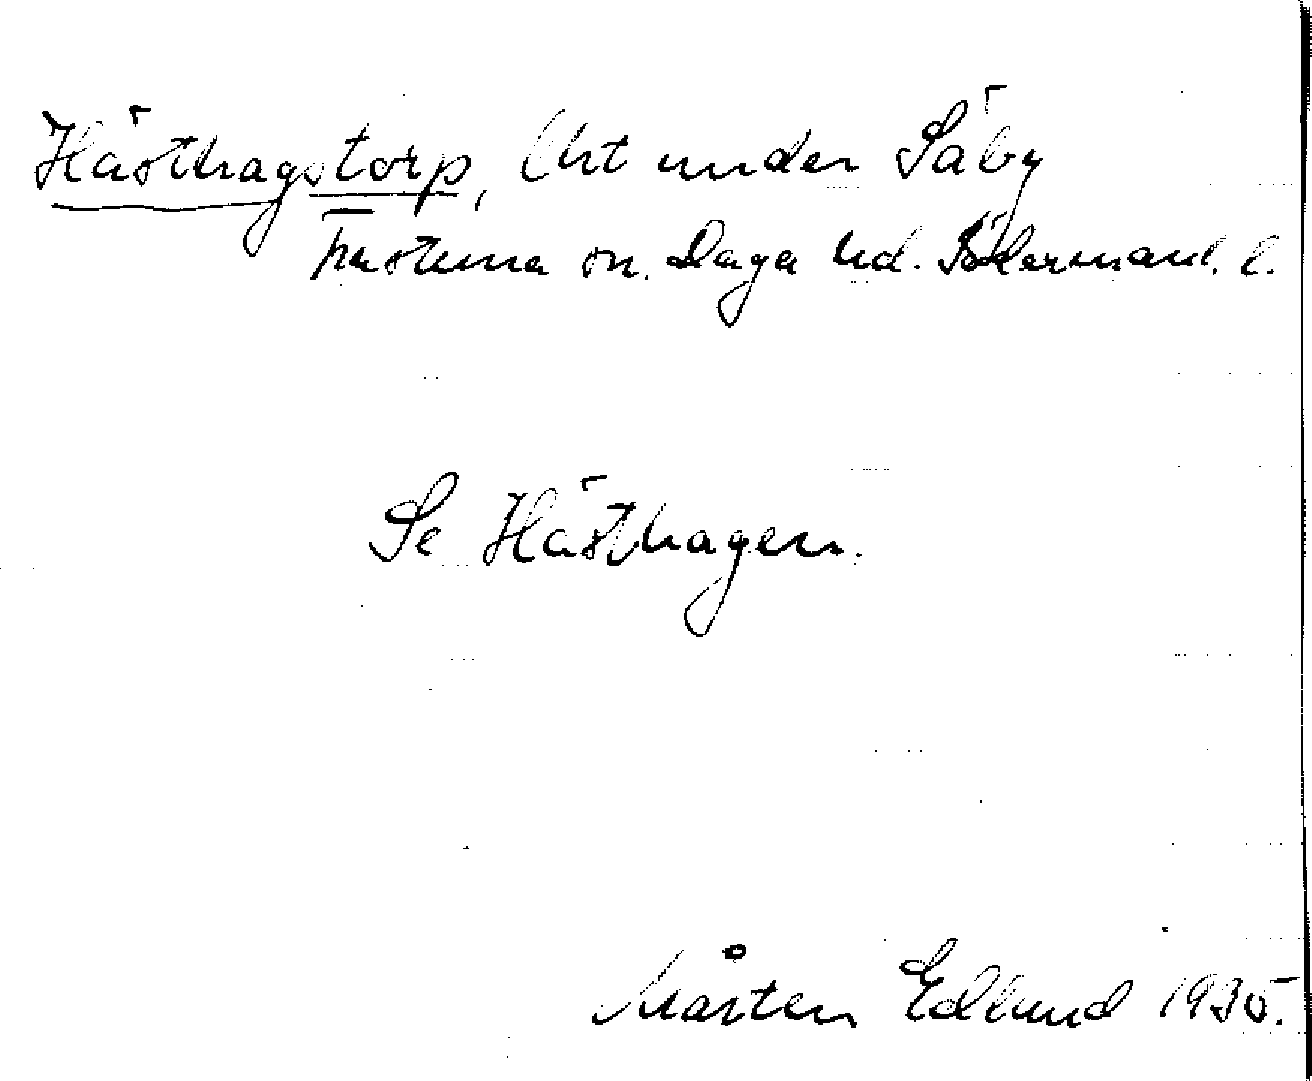 Hästhagstorp, lht under Säby
Frustuna sn. Daga hd. Södermanl. l.
Se Hästhagen.
Mårten Edlund 1935.